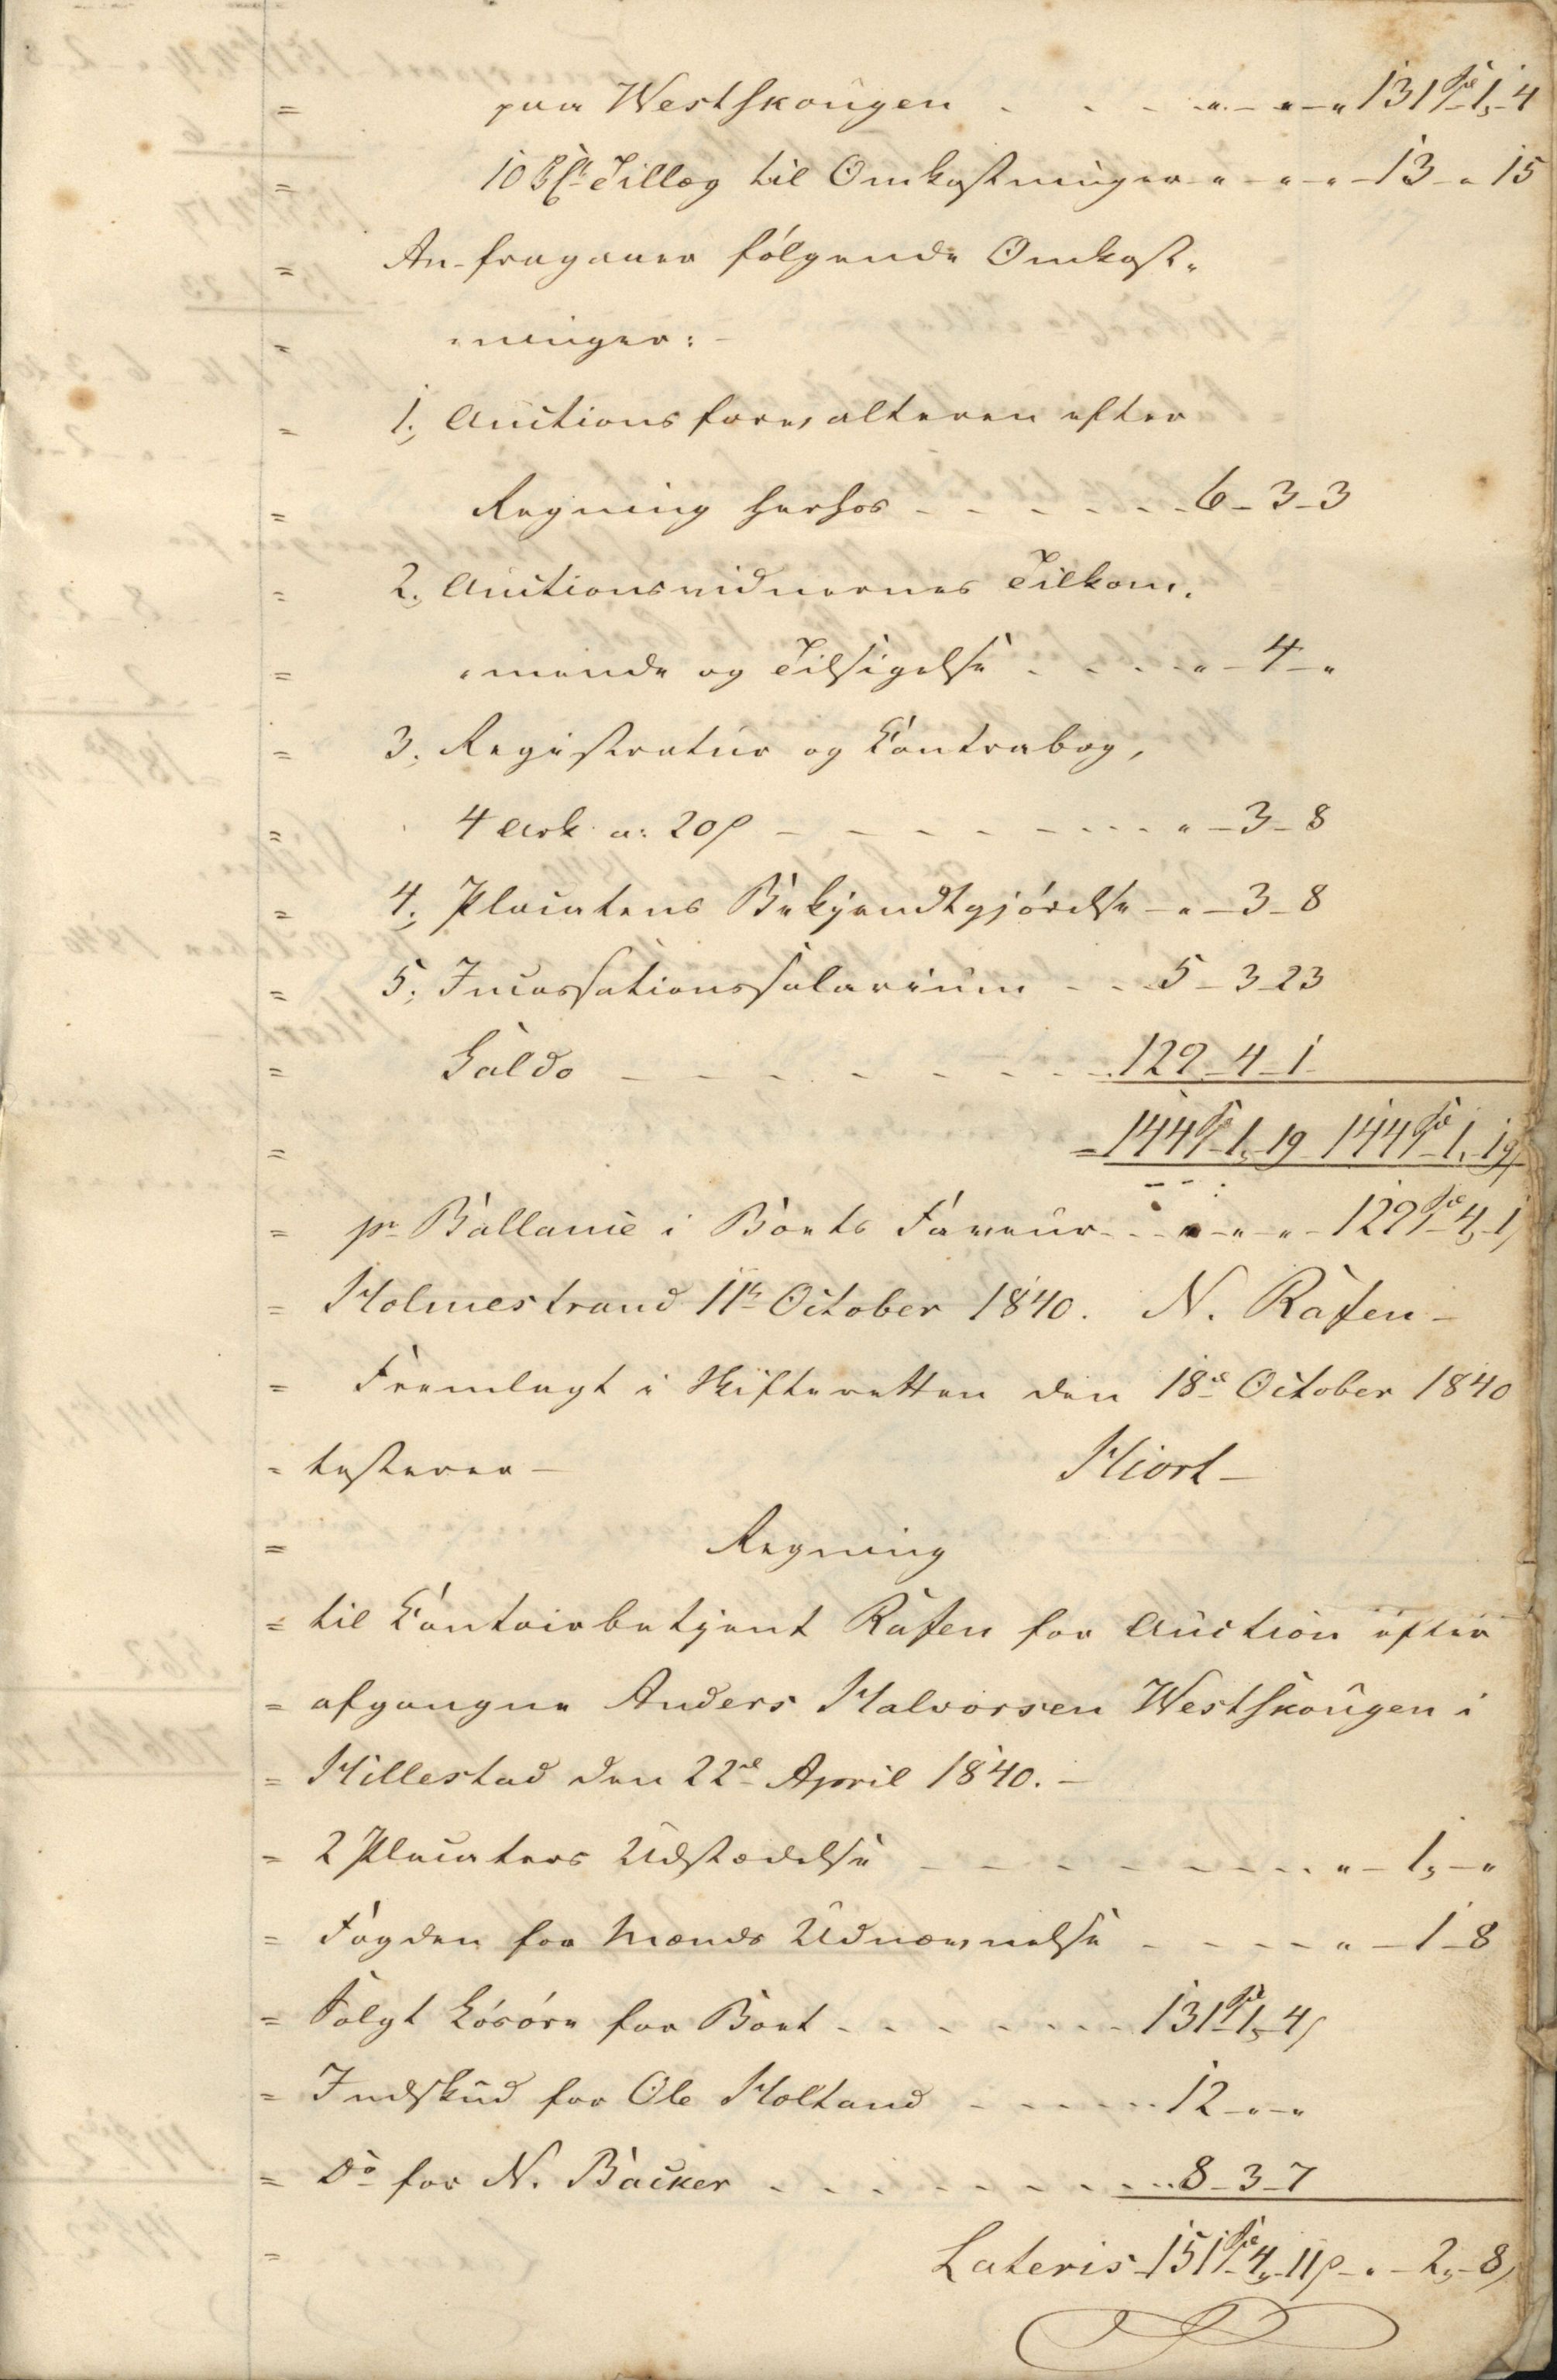 = paa Westskougen . . . „ - „ - „ 131 Sp 1, - 4
= 10 PCt Tillæg til Omkostninger - „ - „ - „ - 13 - „ 15
= An-fragaaer følgende Omkost-
= ninger: -
= 1, Auctionsforvalteren efter
= Regning herhos - - - - - - 6 - 3 - 3
= 2, Auctionsvidnernes Tilkom-
= mende og Tilsigelse . . . . „ - 4 - „
= 3, Registratur og Contrabog,
= 4 Ark a: 20 ß - - - - - - - - „ - 3 - 8
= 4, Placatens Bekjendtgjørelse - „ - 3 - 8
= 5, Incassationssalarium - - - 5 - 3 - 23
= Saldo - - - - - - - - 129 - 4 - 1
= 144 Sp 1, - 19 144 Sp 1, - 19
= pr Ballance i Boets Faveur - - „ - „ - „ - 129 Sp 4, - 1
= Holmestrand 11te October 1840. N. Rafen -
= Fremlagt i Skifteretten den 18de October 1840
= testerer - Hiort -
= Regning
= til Contoirbetjent Rafen for Auction efter
= afgangne Anders Halvorsen Westskougen i
= Hillestad den 22de April 1840. -
= 2 Placaters Udstædelse - - - - - - - - „ - 1, - „
= Fogden for Mænds Udnævnelse - - - - - „ - 1 - 8
= Solgt Løsøre for Boet - - - - - - - 131 Sp 1, - 4
= Indskud for Ole Holtand - - - - - - 12 - „ - „
= Do for N. Backer - - - - - - - - 8 - 3 - 7
= Lateris - 151 Sp 4, - 11 ß - „ - 2, - 8